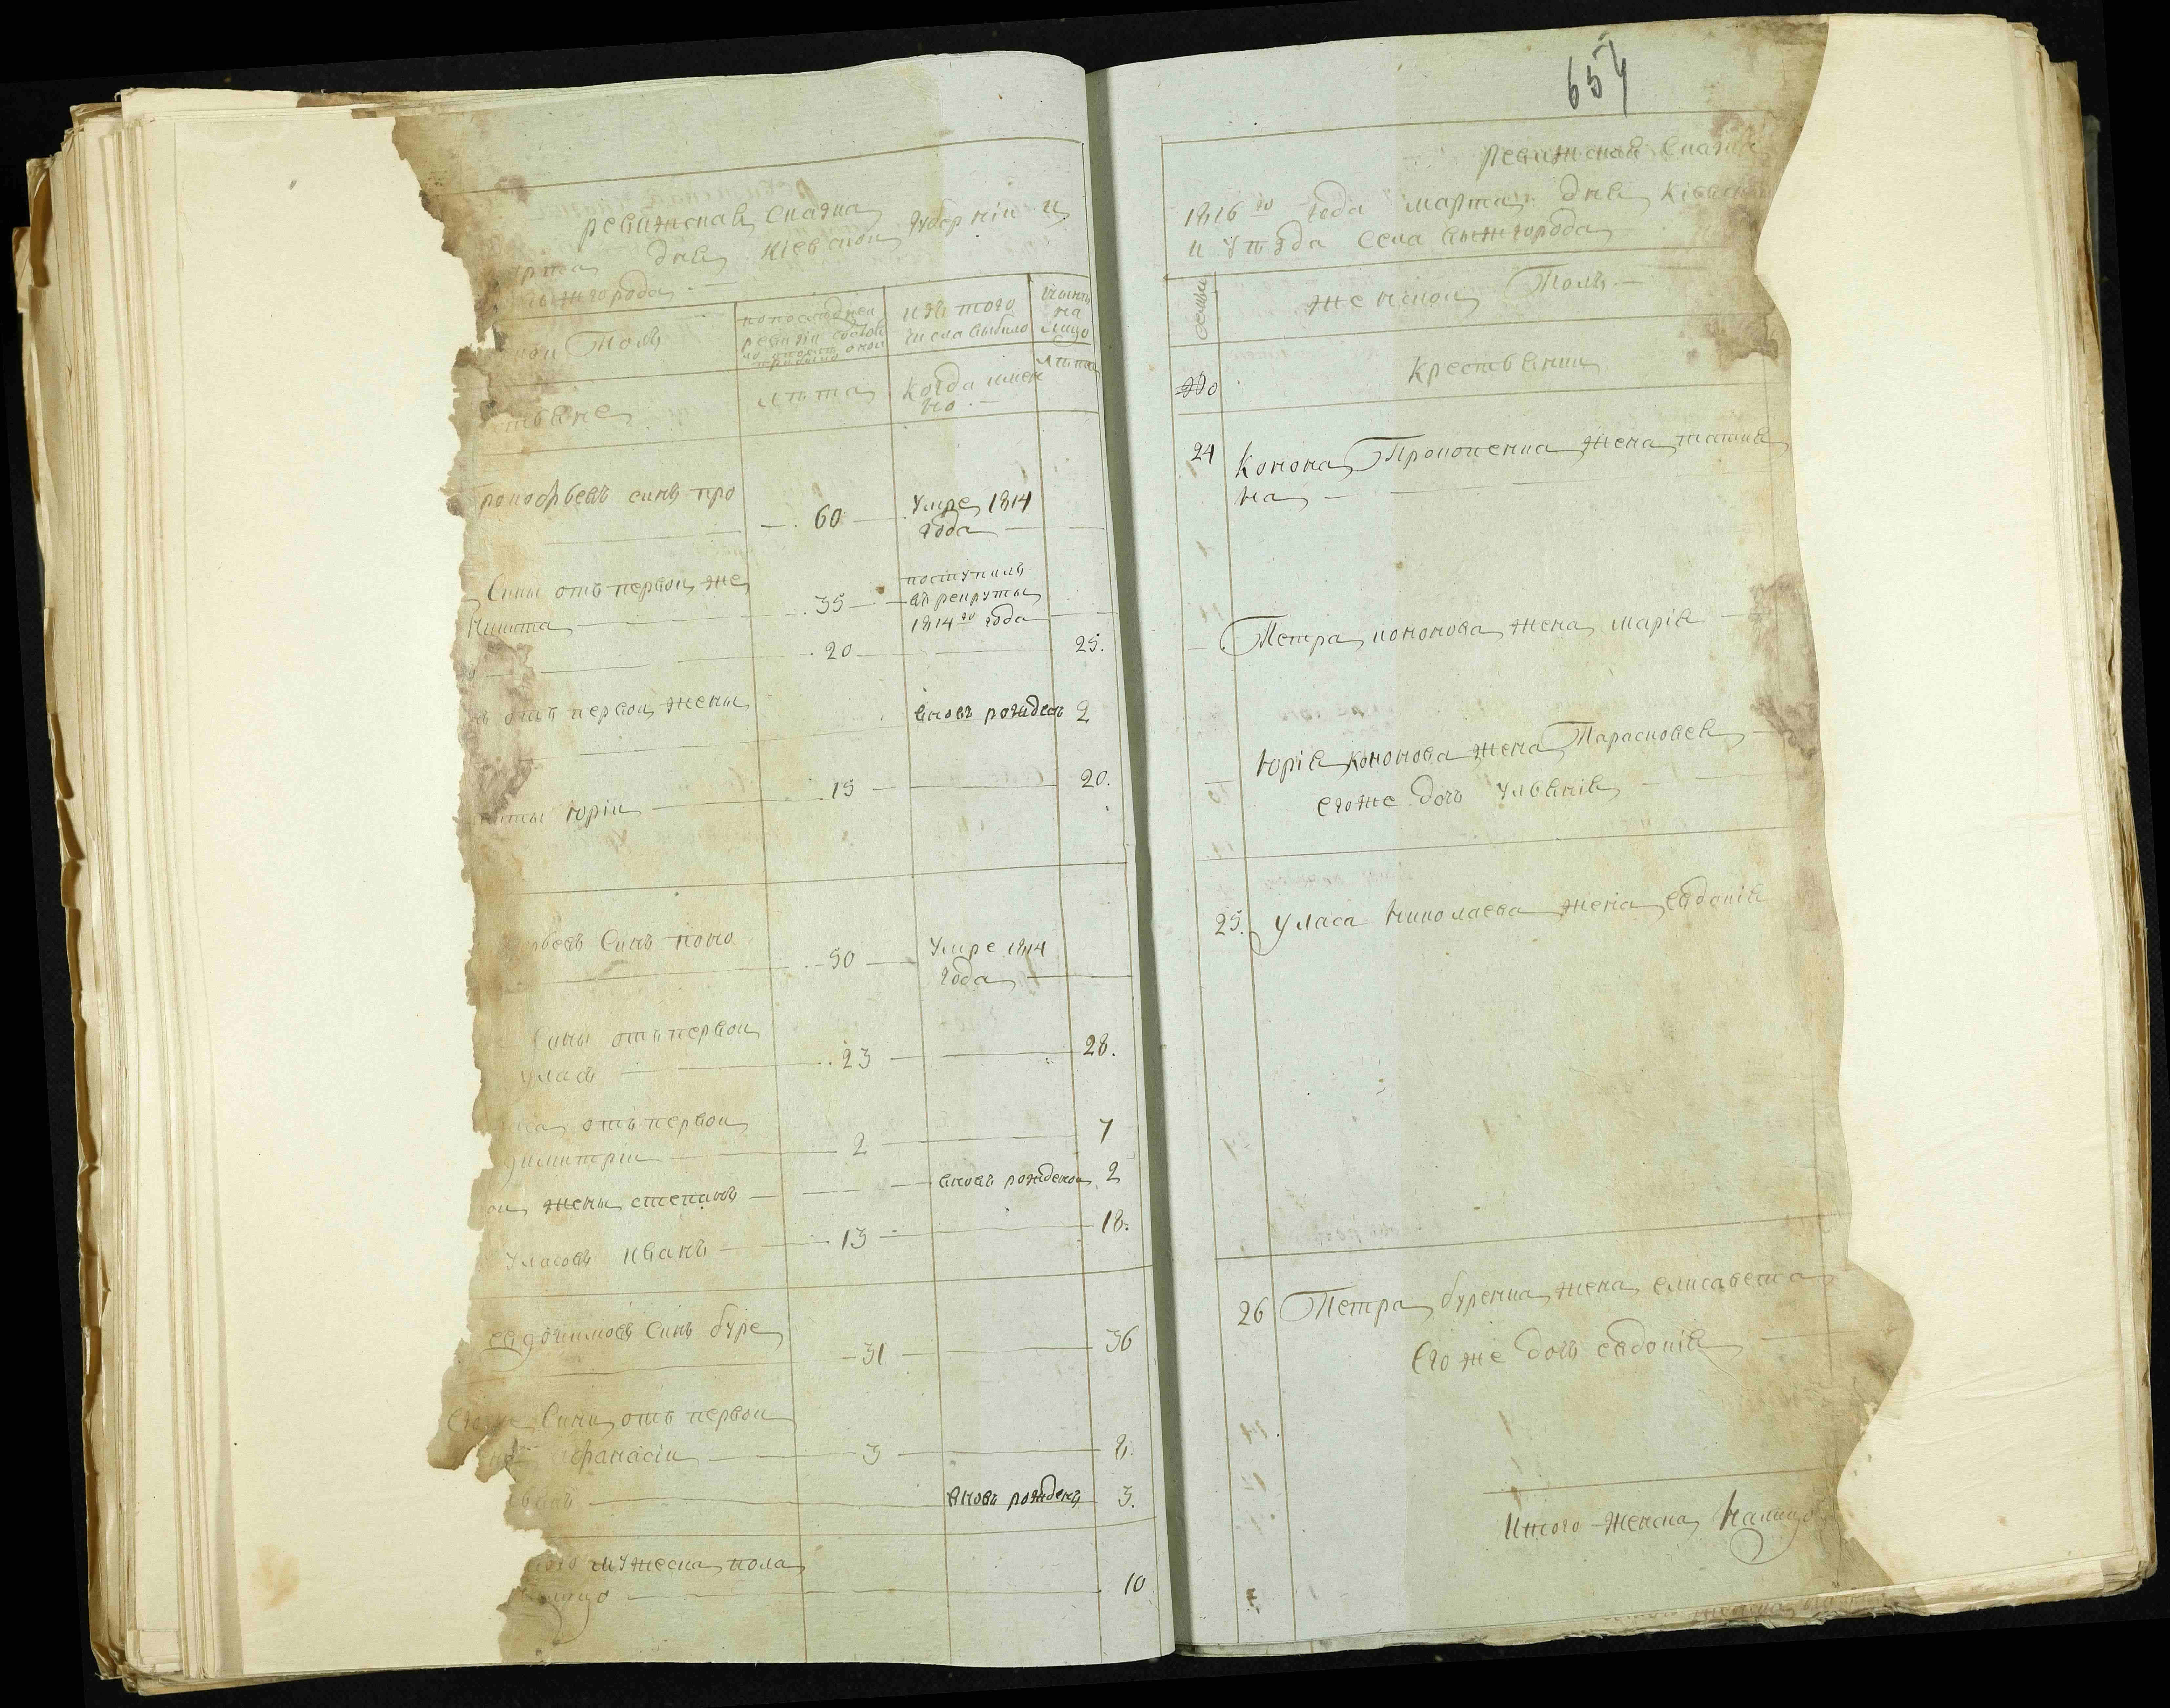 ревижская сказка
дня Кіевской губерніи и
ыжгорода
ной Полъ
попоследней
ревизіи состоя
ло и после оной
прибыло
изъ того
числа выбыло
ныне
на
лицо
стьяне
лѣта
Когда имен
но
лѣта
рокофьевъ синъ про
60
Умре 1814
года
Сины отъ первой же
Никита
35
поступилъ
въ рекруты
1814го года
20
25.
отъ первой жены
вновъ рожденъ
2
киты юрій
15
20.
фьевъ Синъ коно
50
Умре 1814
года
Сины отъ первой
уласъ
23
28.
отъ первой
димитрій
2
7
ой жены степанъ
вновъ рожденой
2
Уласовъ иванъ
13
18.
евдокимовъ Синъ буре
31
36
Егоже Сини отъ первой
афанасій
3
8.
вновъ рожденъ
3.
мужеска пола
10
654
ревижская Сказка
1816го года марта дня Кіевской
и уѣзда села вижгорода
семьи
женской Полъ
№
крестьянки
24
Конона Прокопенка жена татия
на
Петра кононова жена марія
Юрія кононова жена Парасковея
егоже дочъ ульянія
25.
Уласа николаева жена евдокія
26
Петра буренка жена елисавета
Егоже дочъ евдокія
Итого женска налицо